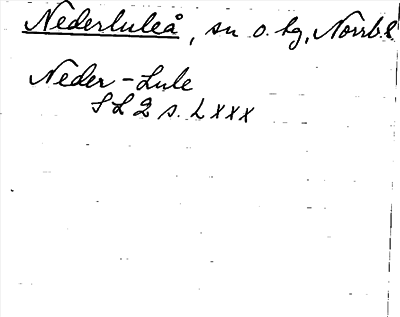 Nederluleå, sn o. hg, Norrb. l
Neder-Lule
S L 2 s. LXXX